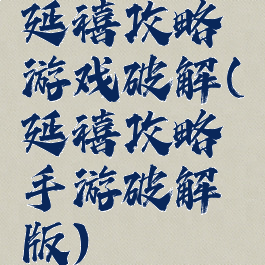 延禧攻略
游戏破解(
延禧攻略
手游破解
版)